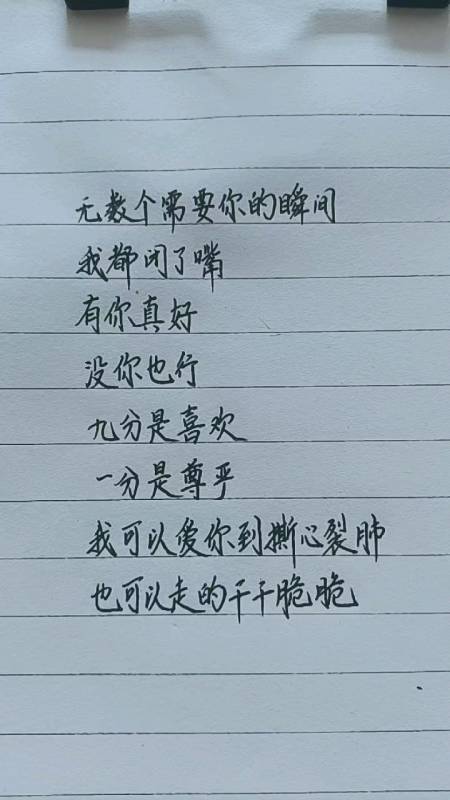 无数个需要你的瞬间
我都闭了嘴
有你真好
没你也行
九分是喜欢
一分是尊乎
我可以爱你到撕心裂肺
也可以走的干干脆脆